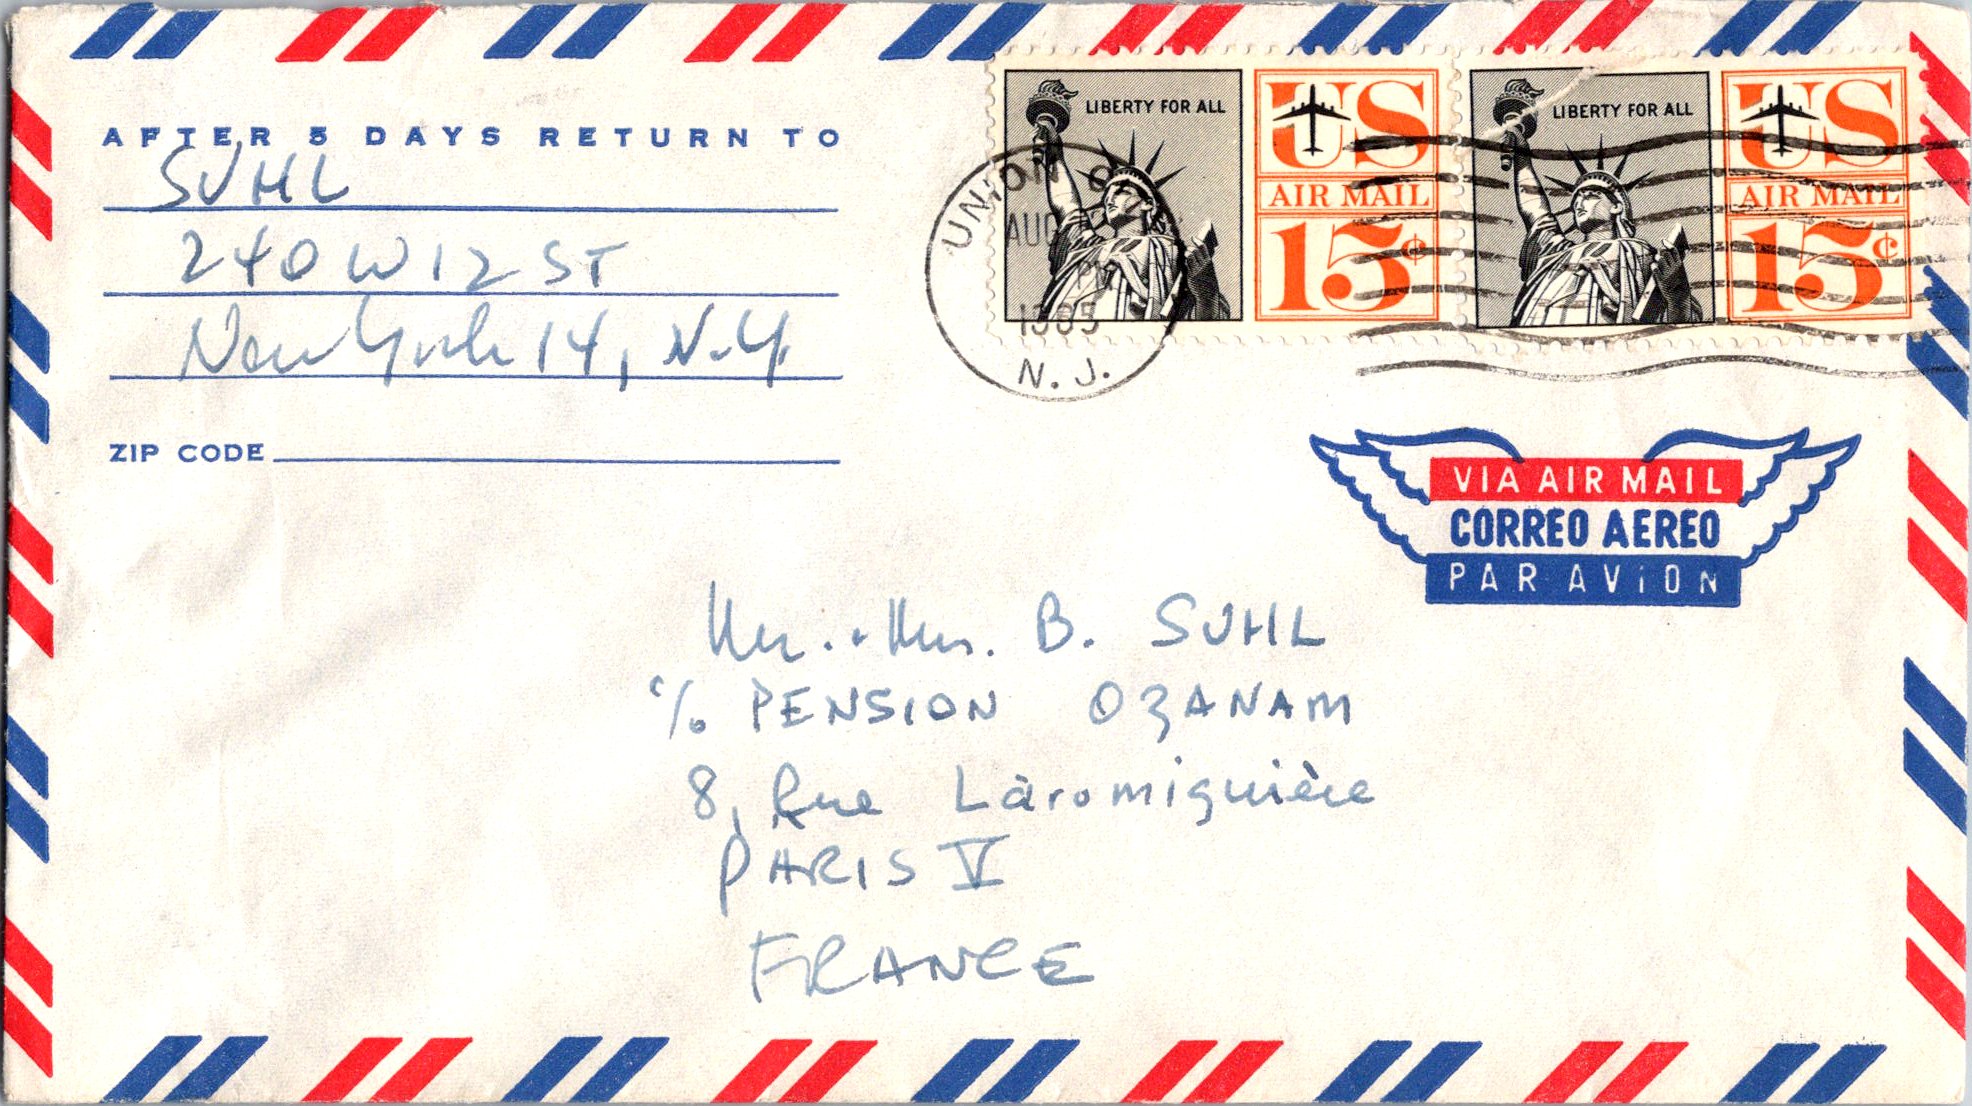 AFTER 5 DAYS RETURN TO
SUHL
240 W 12 ST
New York 14, N.Y.
ZIP CODE
LIBERTY FOR ALL
US
AIR MAIL
15¢
LIBERTY FOR ALL
US
AIR MAIL
15¢
UNION
AUG
PM
N. J.
VIA AIR MAIL
CORREO AEREO
PAR AVION
Mr. + Mrs. B. SUHL
c/o PENSION OZANAM
8, Rue Làromiguière
PARIS V
FRANCE